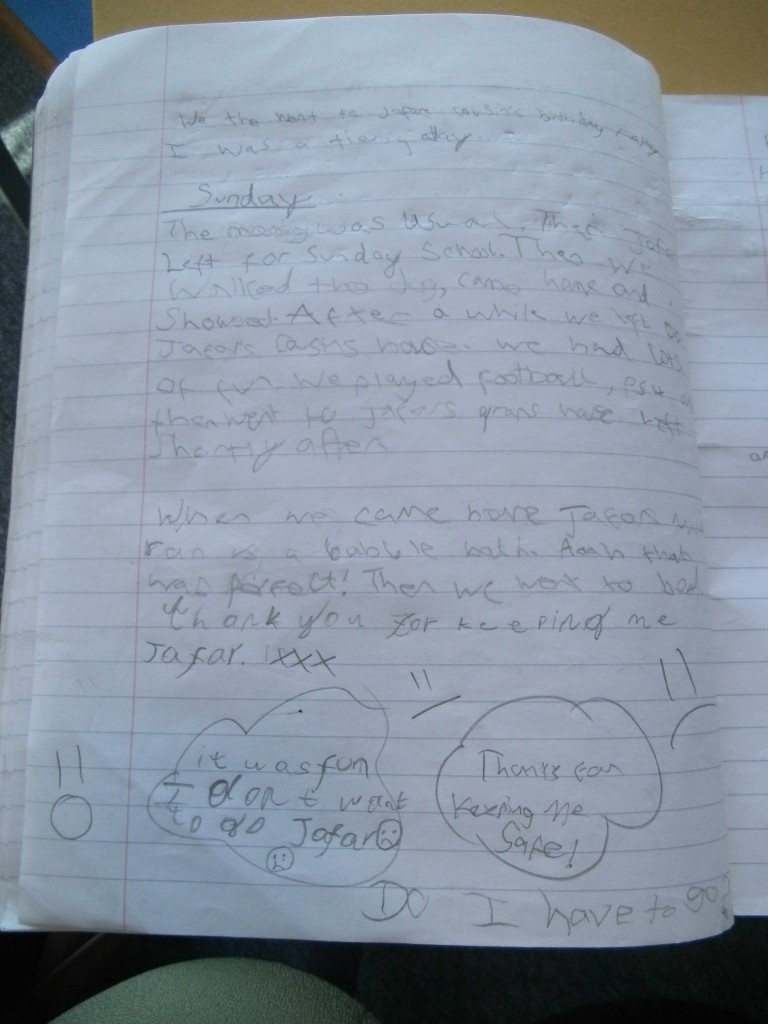 We the went to Jafars cousins birthday party
I was a tiering
Sunday
The was usual. Then Jafar
Left for Sunday School. Then we
Walked the came home and
Showed. After a while we left
Jafars Casins house. we had lots
of fun we played football,
then went to Jafars grans house left
Shortly after
When we came home Jafars
ran us a bubble bath. Aaah that
was perfect! Then we went to bed.
thank you for keeping me
Jafar. xxx
it was fun
I don t want
to go Jafar
Thanks for
Keeping me
Safe!
Do I have to go?